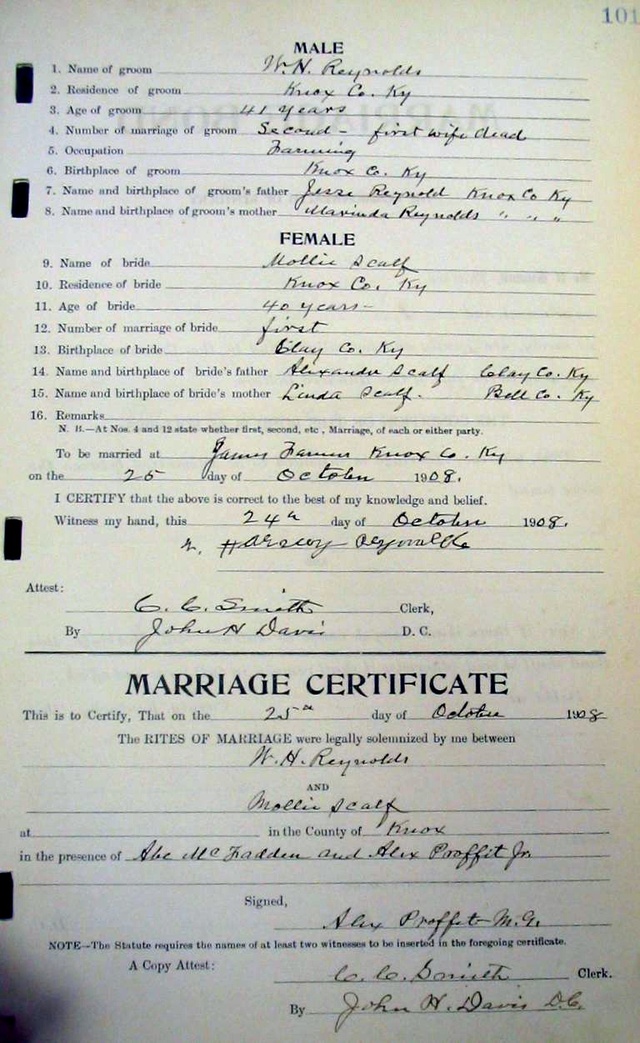 101
MALE
1. Name of groom W. H. Reynolds
2. Residence of groom Knox Co. Ky
3. Age of groom 41 years
4. Number of marriage of groom Second - first wife dead
5. Occupation Farming
6. Birthplace of groom Knox Co. Ky
7. Name and birthplace of groom's father Jesse Reynold Knox Co Ky
8. Name and birthplace of groom's mother Marinda Reynolds " " "
FEMALE
9. Name of bride Mollie Scalf
10. Residence of bride Knox Co. Ky
11. Age of bride 40 years
12. Number of marriage of bride first
13. Birthplace of bride Clay Co. Ky
14. Name and birthplace of bride's father Alexander Scalf Clay Co. Ky
15. Name and birthplace of bride's mother Linda Scalf. Bell Co. Ky
16. Remarks
N. B.—At Nos. 4 and 12 state whether first, second, etc., Marriage, of each or either party.
To be married at James Knox Co. Ky
on the 25 day of October 1908.
I CERTIFY that the above is correct to the best of my knowledge and belief.
Witness my hand, this 24th day of October 1908.
Attest:
C. C. Smith Clerk,
By John H Davis D. C.
MARRIAGE CERTIFICATE
This is to Certify, That on the 25th day of October 1908
The RITES OF MARRIAGE were legally solemnized by me between
W. H. Reynolds
AND
Mollie Scalf
at in the County of Knox
in the presence of Abe McFadden and Alex Proffit Jr.
Signed,
Alex Proffit M.G.
NOTE—The Statute requires the names of at least two witnesses to be inserted in the foregoing certificate.
A Copy Attest:
C. C. Smith Clerk.
By John H. Davis D.C.